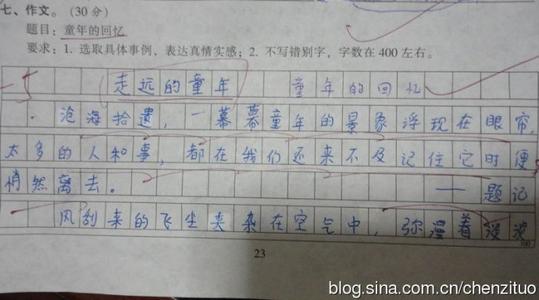 七、作文。(30分)
题目：童年的回忆
要求：1. 选取具体事例，表达真情实感；2. 不写错别字，字数在400左右。
-5 走远的童年 童年的回忆
沧海拾遗，一幕幕童年的景象浮现在眼帘，
太多的人和事，都在我们还来不及记住它时便
悄然离去。 ——题记
风刮来的飞尘夹杂在空气中，弥漫着
23
blog.sina.com.cn/chenzituo